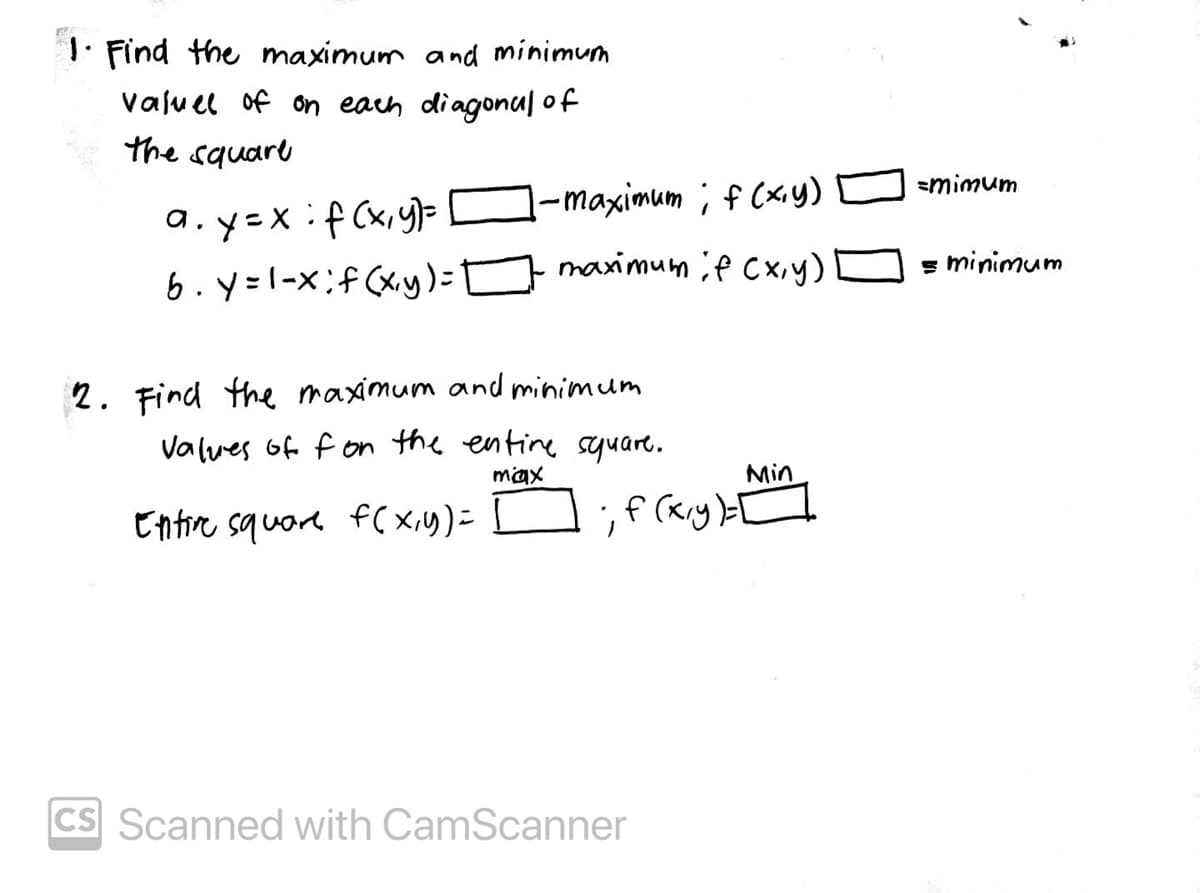 1. Find the maximum and minimum
values of on each diagonal of
the square
a. y=x : f(x,y)= -maximum ; f(x,y) =mimum
b. y=1-x; f(x,y)= - maximum ; f(x,y) = minimum
2. Find the maximum and minimum
Values of f on the entire square.
max Min
Entire square f(x,y)= ; f(x,y)=
CS Scanned with CamScanner